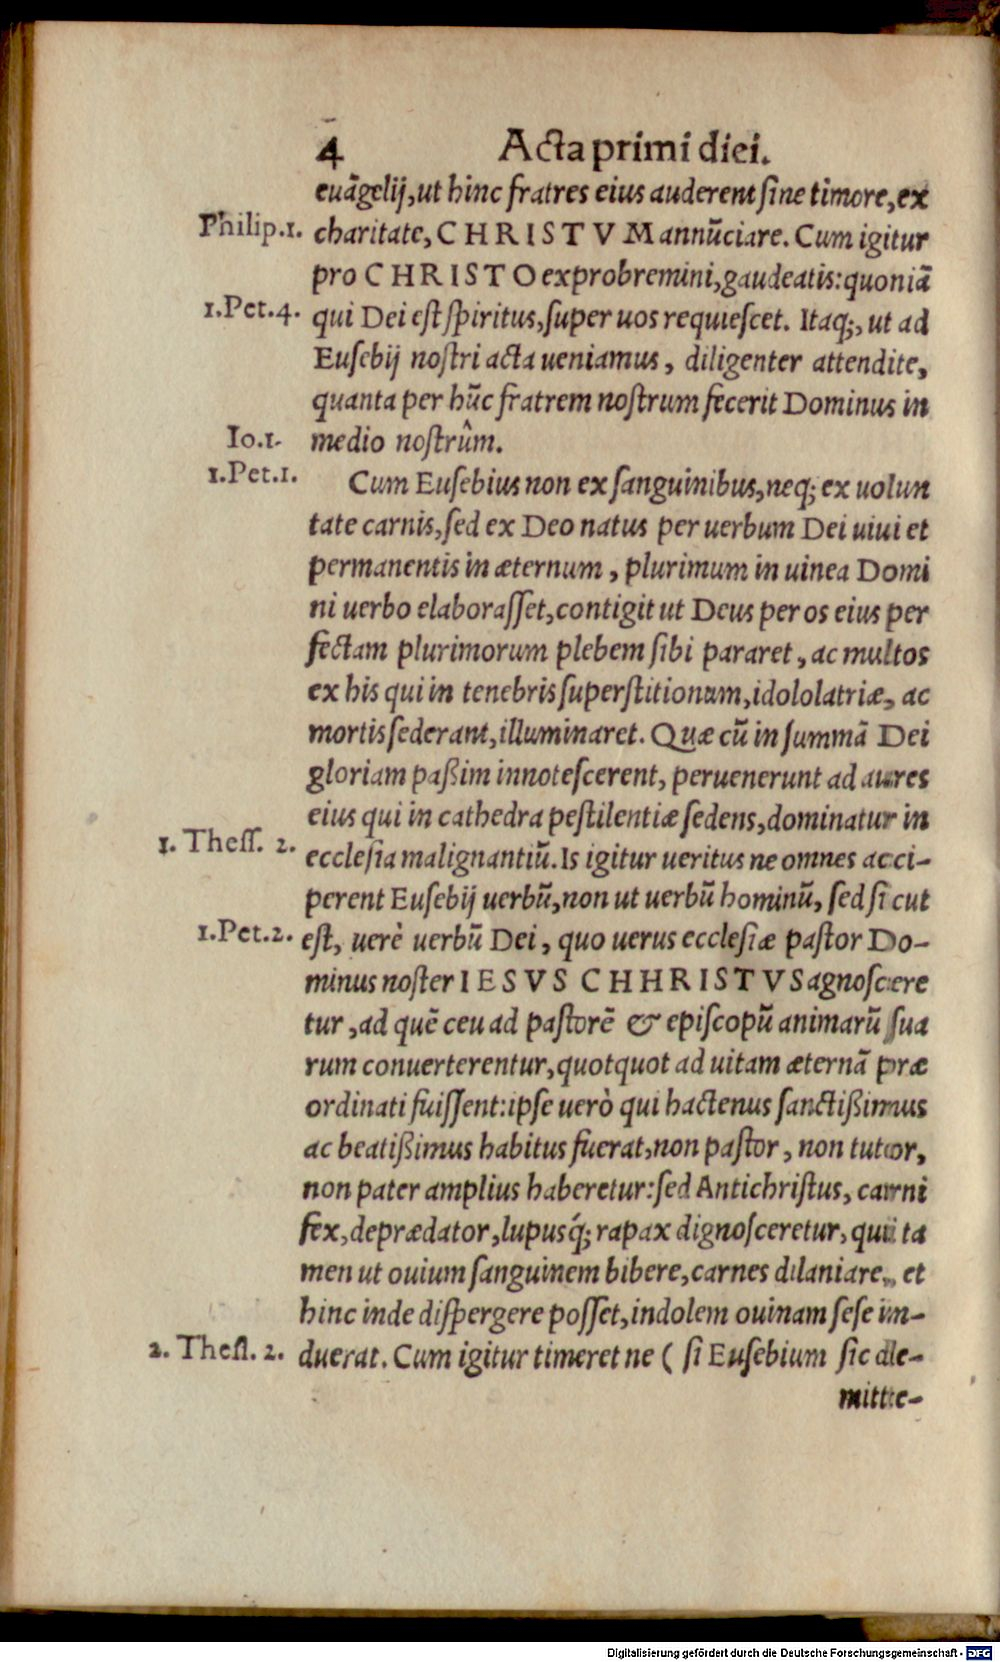 4 Acta primi diei.
euãgelij, ut hinc fratres eius auderent ſine timore, ex
Philip.1. charitate, CHRISTVM annũciare. Cum igitur
pro CHRISTO exprobremini, gaudeatis: quoniã
1.Pet.4. qui Dei eſt ſpiritus, ſuper uos requieſcet. Itaq;, ut ad
Euſebij noſtri acta ueniamus, diligenter attendite,
quanta per hũc fratrem noſtrum fecerit Dominus in
Io.1. medio noſtrûm.
1.Pet.1. Cum Euſebius non ex ſanguinibus, neq; ex uolun
tate carnis, ſed ex Deo natus per uerbum Dei uiui et
permanentis in æternum, plurimum in uinea Domi
ni uerbo elaboraſſet, contigit ut Deus per os eius per
fectam plurimorum plebem ſibi pararet, ac multos
ex his qui in tenebris ſuperſtitionum, idololatriæ, ac
mortis ſederant, illuminaret. Quæ cũ in ſummã Dei
gloriam paßim innoteſcerent, peruenerunt ad aures
eius qui in cathedra peſtilentiæ ſedens, dominatur in
1. Theſſ. 2. eccleſia malignantiũ. Is igitur ueritus ne omnes acci-
perent Euſebij uerbũ, non ut uerbũ hominũ, ſed ſicut
1.Pet.2. eſt, uerè uerbũ Dei, quo uerus eccleſiæ paſtor Do-
minus noſter IESVS CHHRISTVS agnoſcere
tur, ad quẽ ceu ad paſtorẽ & epiſcopũ animarũ ſua
rum conuerterentur, quotquot ad uitam æternã præ
ordinati fuiſſent: ipſe uerò qui hactenus ſanctißimus
ac beatißimus habitus fuerat, non paſtor, non tutor,
non pater amplius haberetur: ſed Antichriſtus, carni
fex, deprædator, lupusq́; rapax dignoſceretur, qui ta
men ut ouium ſanguinem bibere, carnes dilaniare, et
hinc inde diſpergere poſſet, indolem ouinam ſeſe in-
2. Theſſ. 2. duerat. Cum igitur timeret ne ( ſi Euſebium ſic de-
mitte-
Digitalisierung gefördert durch die Deutsche Forschungsgemeinschaft - DFG